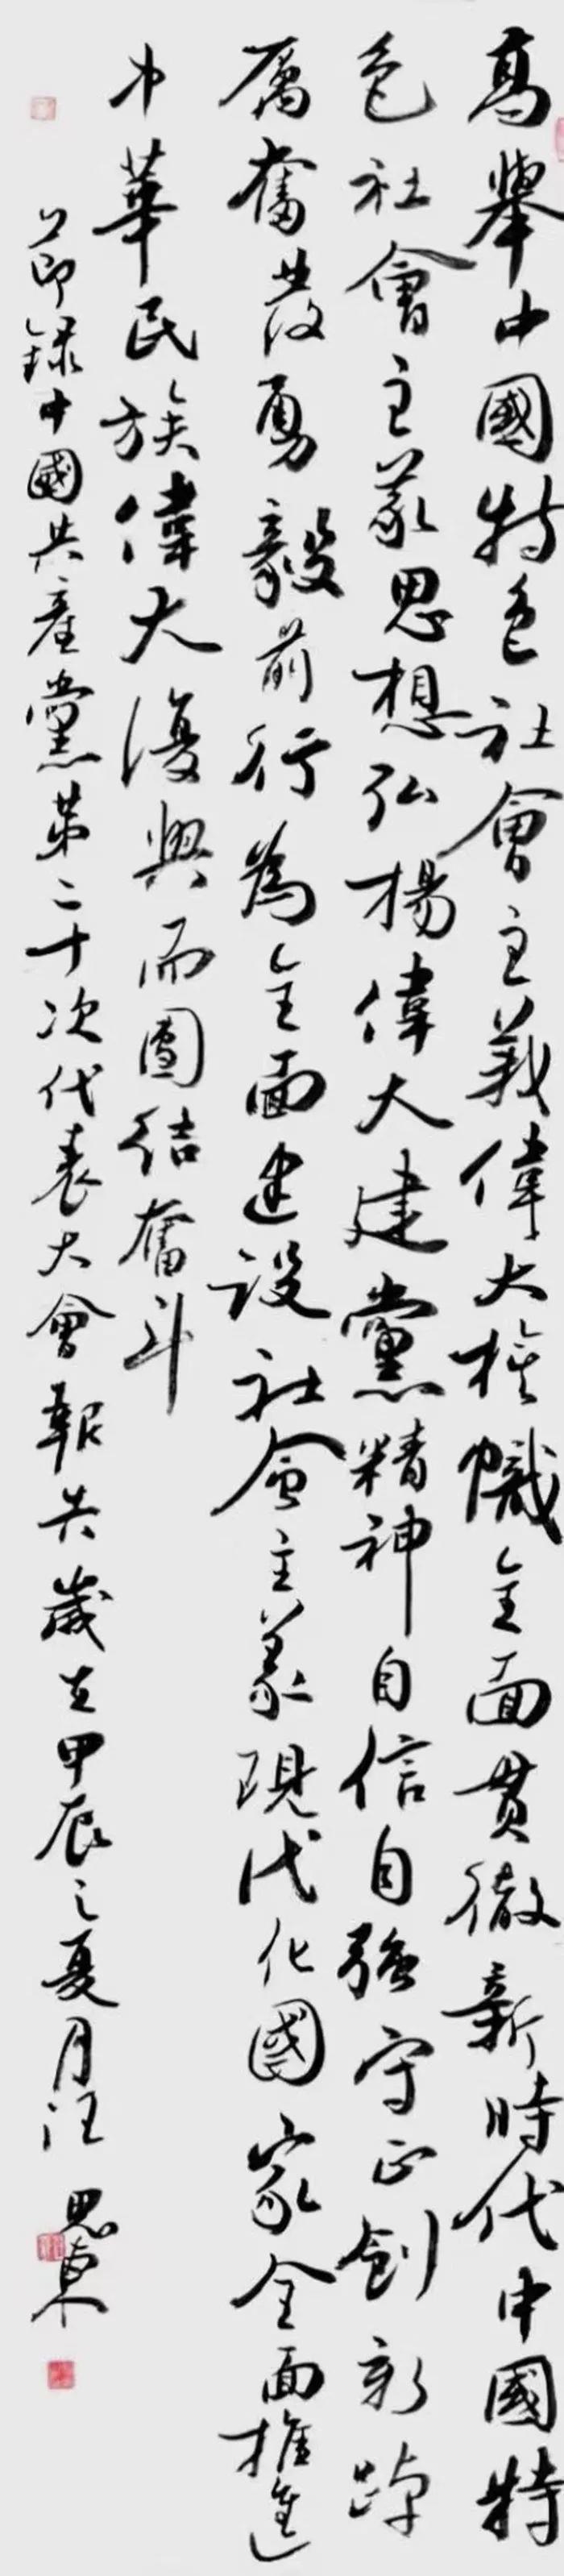 高舉中國特色社會主義偉大旗幟全面貫徹新時代中國特
色社會主義思想弘楊偉大建黨精神自信自強守正創新踔
厲奮發勇毅前行為全面建設社會主義現代化國家全面推進
中華民族偉大復興而團結奮斗
節錄中國共產黨第二十次代表大會報告歲在甲辰之夏月汪思東